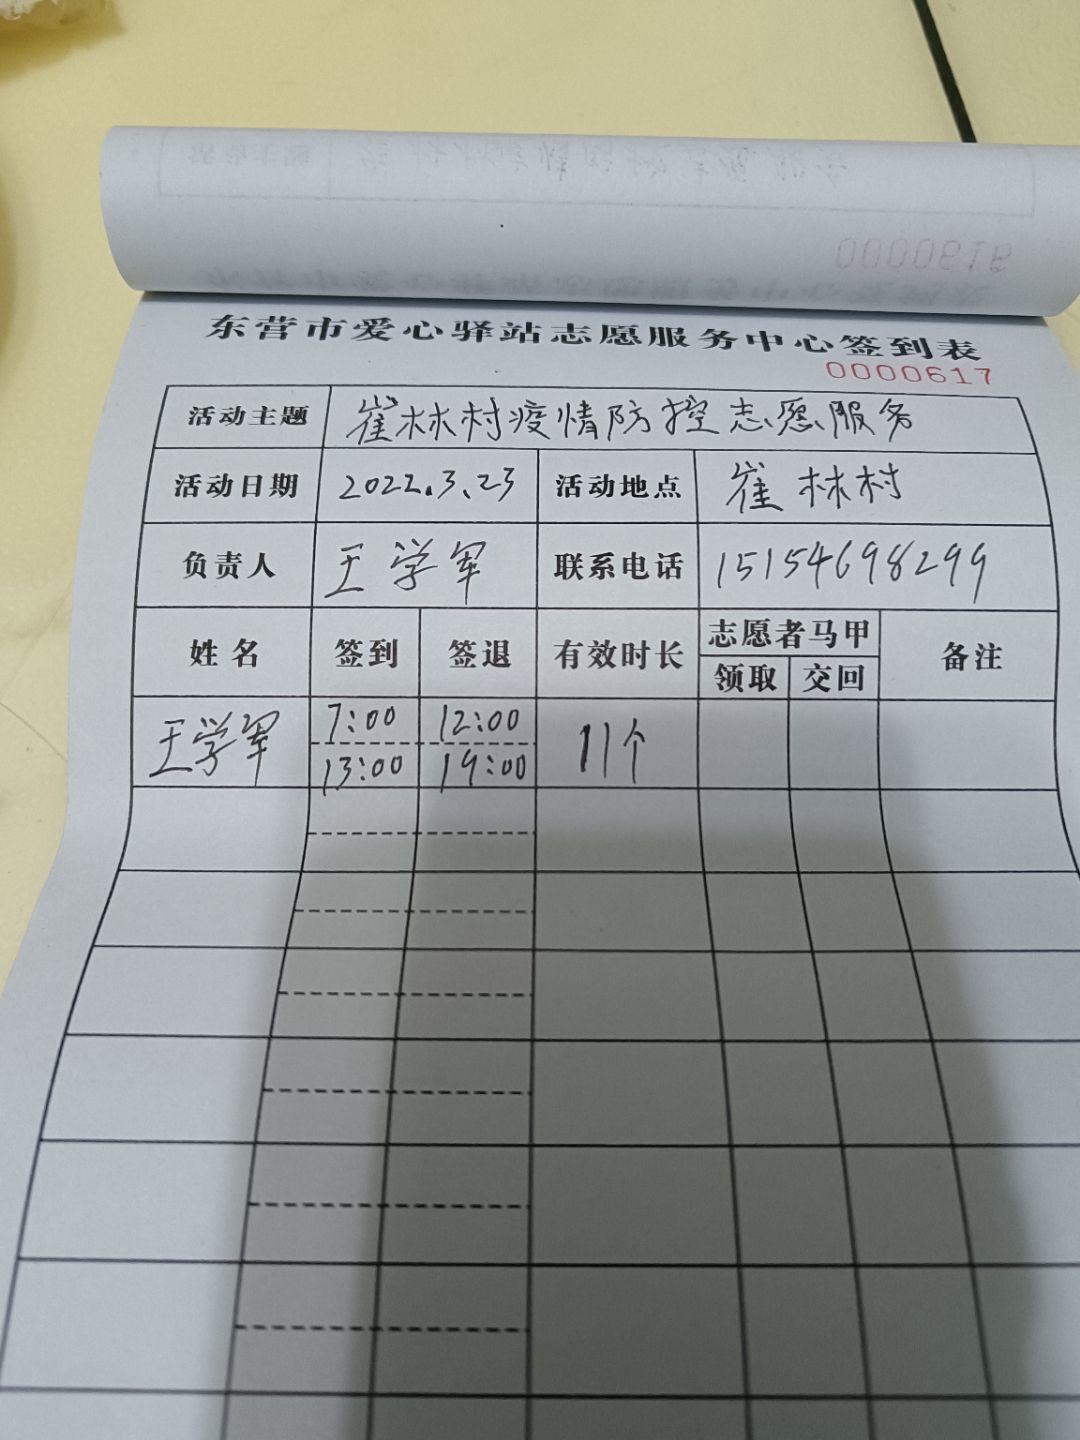 东营市爱心驿站志愿服务中心签到表
0000617
活动主题 崔林村疫情防控志愿服务
活动日期 2022.3.23 活动地点 崔林村
负责人 王学军 联系电话 15154698299
姓名 签到 签退 有效时长 志愿者马甲 备注
领取 交回
王学军 7:00 12:00 11个
13:00 19:00